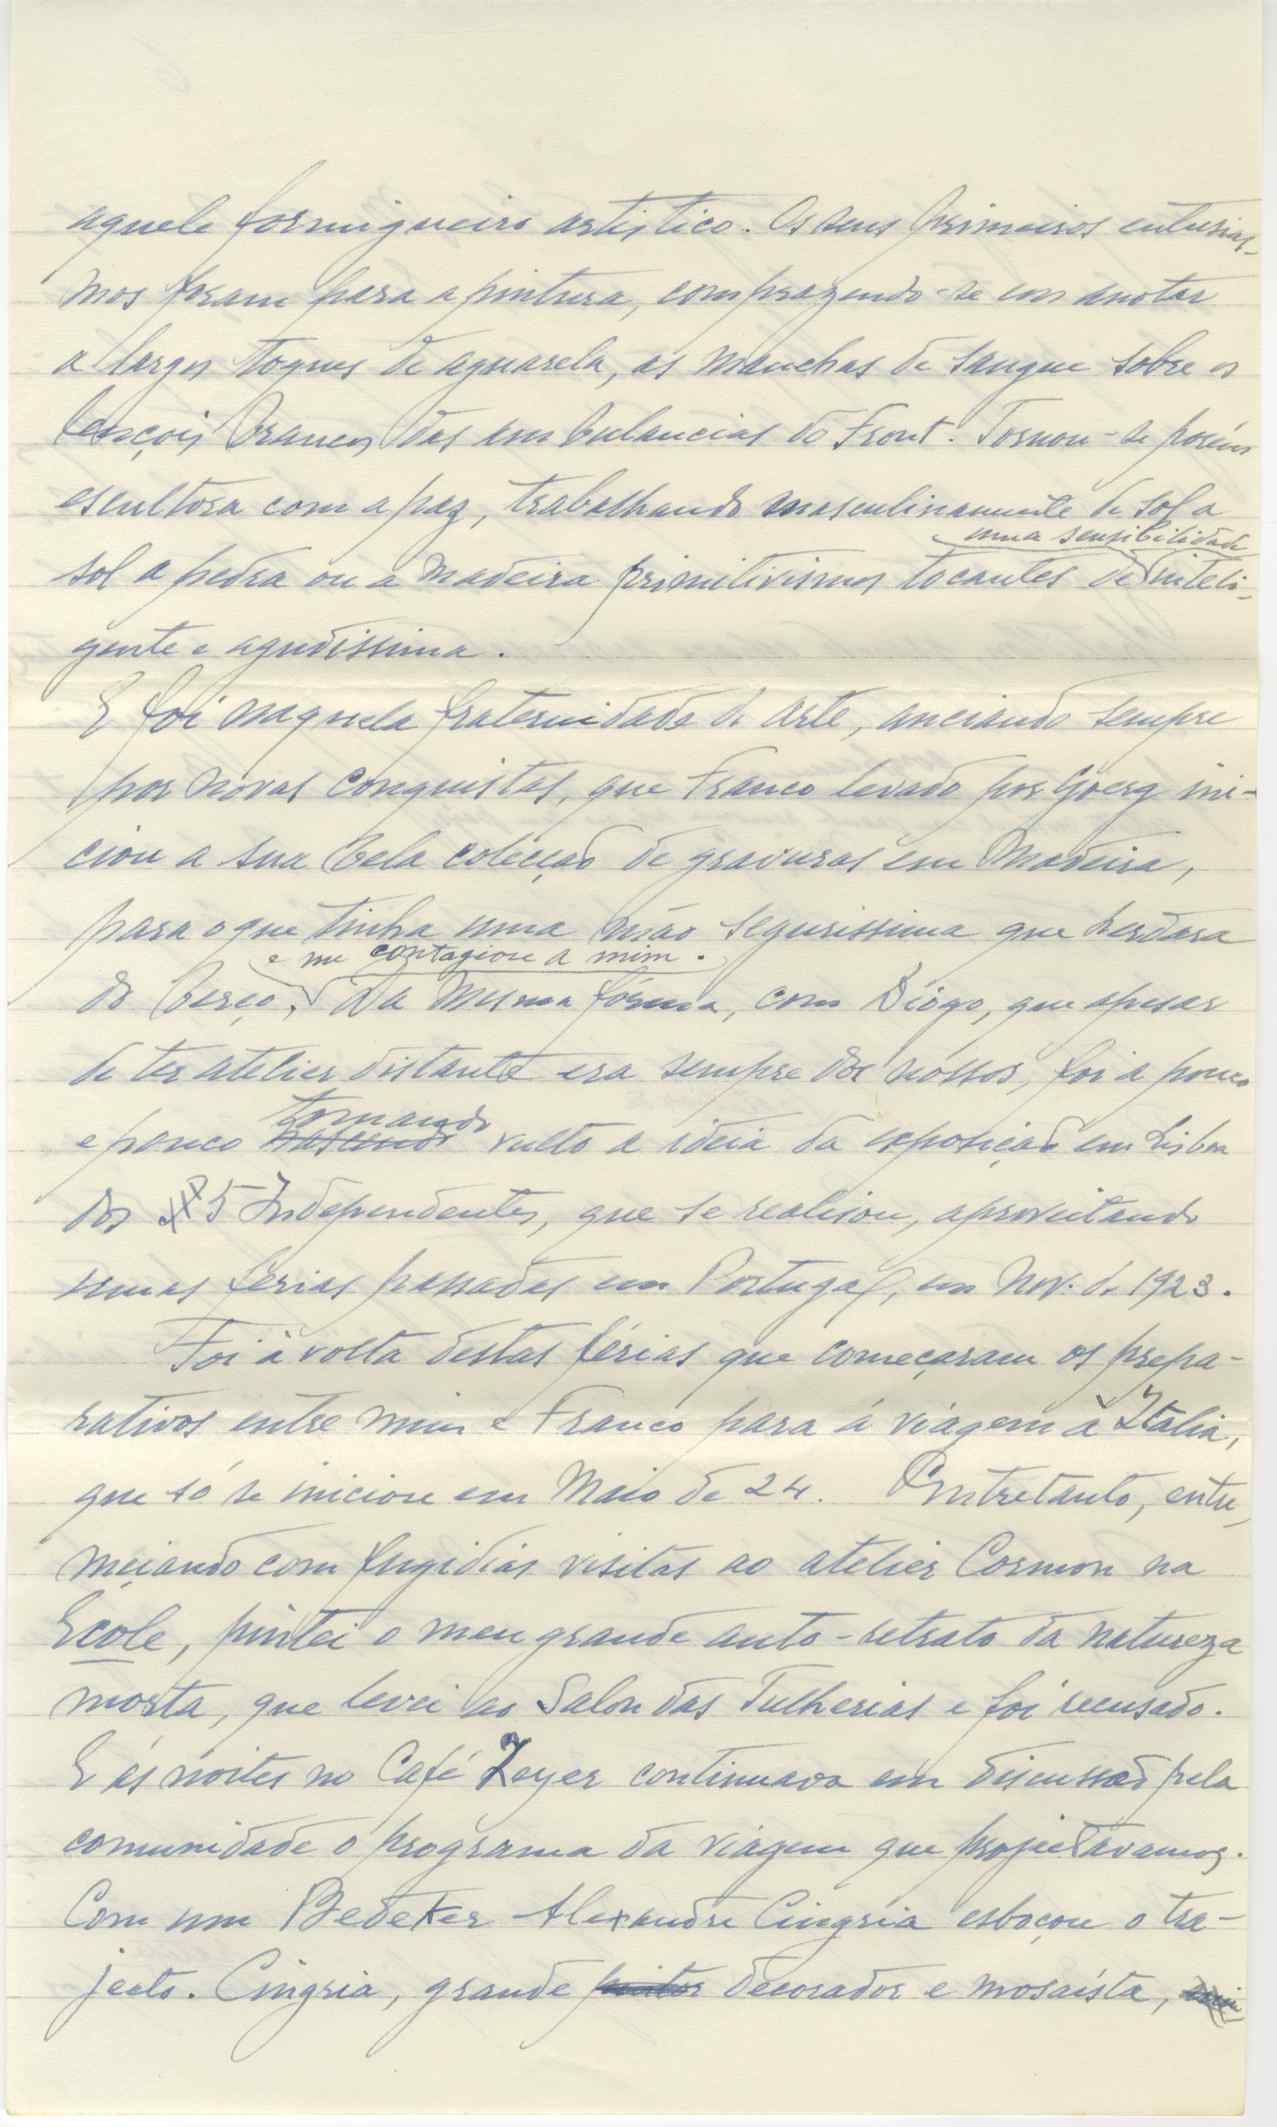 aquele formigueiro artistico. Os seus primeiros enturias-
mos foram para a pintura, comprazendo-se em anotar
a largos toques de aguarela, as manchas de sangue sobre os
lençois brancos das embulancias do Front. Tornou-se porém
escultora com a paz, trabalhando masculinamente de sol a
uma sensibilidade
sol a pedra ou a madeira primitivismos tocantes de inteli-
gente e agudissima.
E foi naquela fraternidade de arte, anciando sempre
por novas conquistas, que Franco levado por Goerg ini-
ciou a sua bela colecção de gravuras em madeira,
para o que tinha uma mão segurissima que herdara
e me contagiou a mim.
do berço, Da mesma fórma, com Diogo, que apesar
de ter atelier distante era sempre dos nossos, foi a pouco
tomando
e pouco vulto a ideia da exposição em Lisboa
dos 5 Independentes, que se realisou, aproveitando
umas ferias passadas em Portugal, em Nov. de 1923.
Foi à volta destas férias que começaram os prepa-
rativos entre mim e Franco para á viagem à Italia,
que só se iniciou em Maio de 24. Entretanto, entre
meiando com fugidias visitas ao atelier Cormon na
Ecole, pintei o meu grande auto-retrato da natureza
morta, que levei ao Salon das Tulherias e foi recusado.
E ás noites no Café Zeyer continuava em discussão pela
comunidade o programa da viagem que projectavamos.
Com um Bedeker Alexandre Cingria esboçou o tra-
jecto. Cingria, grande pintor decorador e mosaísta,